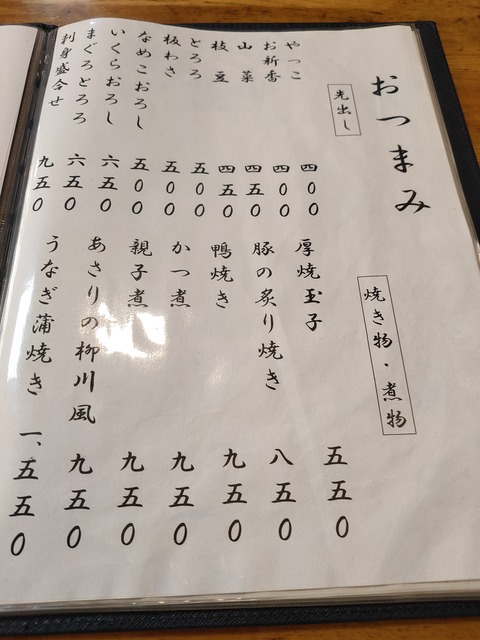 おつまみ
先出し
やっこ 四00
お新香 四00
山菜 四五0
枝豆 四五0
とろろ 五00
板わさ 五00
なめこおろし 五00
いくらおろし 六五0
まぐろとろろ 六五0
刺身盛合せ 九五0
焼き物・煮物
厚焼玉子 五五0
豚の炙り焼き 八五0
鴨焼き 九五0
かつ煮 九五0
親子煮 九五0
あさりの柳川風 九五0
うなぎ蒲焼き 一、五五0